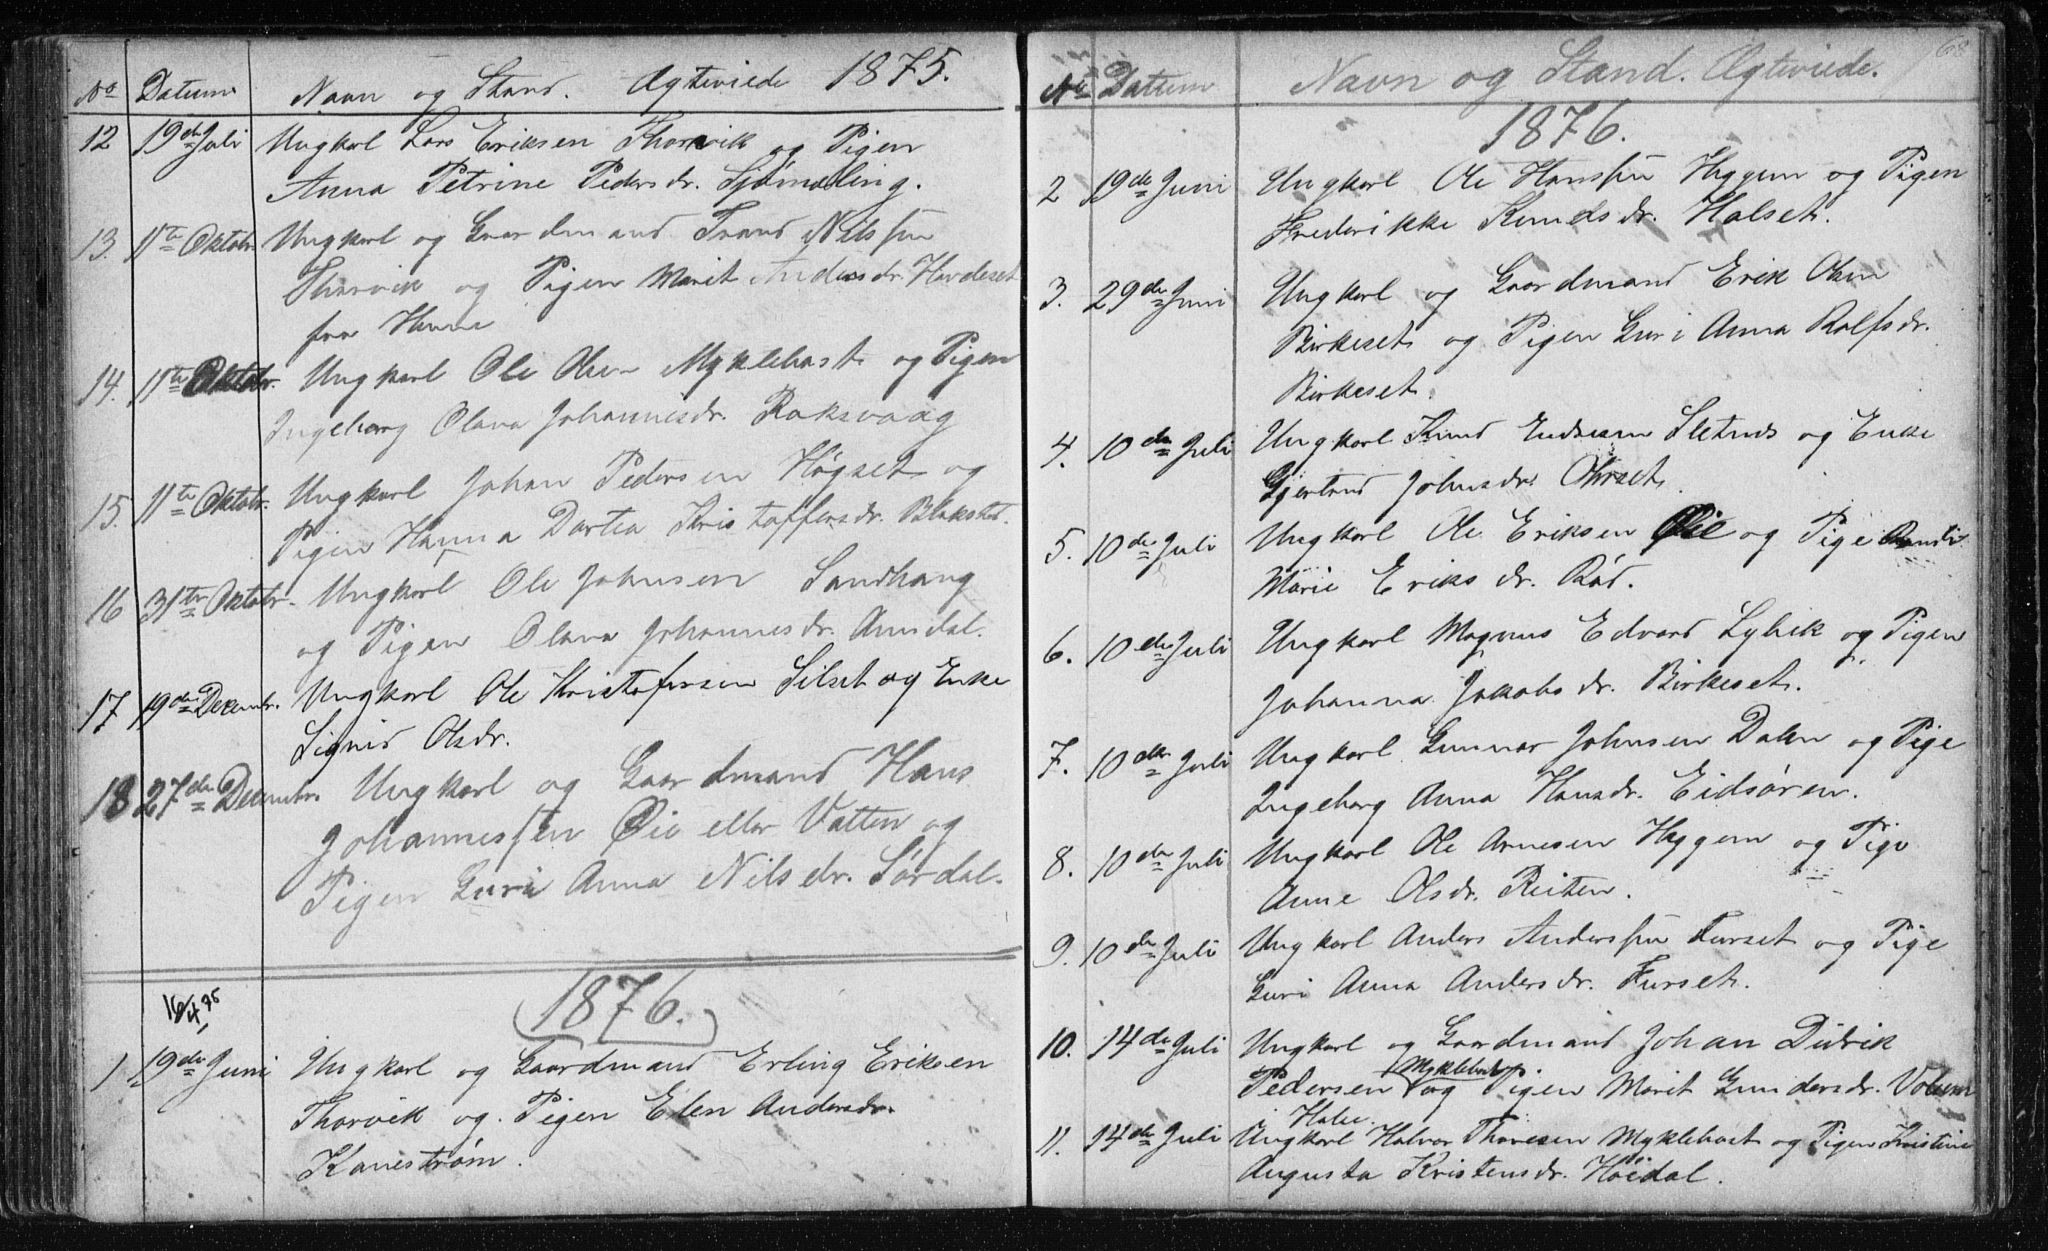 No Datum Navn og Stand. Ægteviede 1875.
12 19de Juli Ungkarl Lars Eriksen Thorvik og Pigen
Anna Petrine Pedersdr. Sjømæling.
13. 11te Oktobr. Ungkarl og Gaardmand Trand Nilssen
Thorvik og Pigen Marit Andersdr. Hardeset
fra
14. 11te Oktobr. Ungkarl Ole Olsen Myklebost og Pigen
Ingeborg Olava Johannesdr. Raksvaag
15. 11te Oktobr. Ungkarl Johan Pedersen Høgset og
Pigen Hanna Dortea Kristoffersdr. Blakstad.
16 31te Oktobr. Ungkarl Ole Johnsen Sandhaug
og Pigen Olava Johannesdr. Aunsdal.
17 19de Decembr. Ungkarl Ole Kristofersen Silset og Enke
Sigrid Olsdr.
18 27de Decembr. Ungkarl og Gaardmand Hans
Johannessen Øie eller Vatten og
Pigen Guri Anna Nilsdr. Sørdal.
1876.
16/4 75
1. 19de Juni Ungkarl og Gaardmand Erling Eriksen
Thorvik og Pigen Elen Andersdr.
Kanestrøm.
68
No Datum Navn og Stand. Ægteviede.
1876.
2 19de Juni Ungkarl Ole Hanssen Heggem og Pigen
Frederikke Knudsdr. Halset.
3. 29de Juni Ungkarl og Gaardmand Erik Olsen
Birkeset og Pigen Guri Anna Rolfsdr.
Birkeset.
4. 10de Juli Ungkarl Knud Endresen Sletnes og Enke
Gjertrud Johnsdr. Ohrset.
5. 10de Juli Ungkarl Ole Eriksen Øie og Pige Randi
Marie Eriksdr. Rød.
6. 10de Juli Ungkarl Magnus Edvard Lybik og Pigen
Johanna Jakobsdr. Birkeset.
7. 10de Juli Ungkarl Gunnar Johnsen Dalen og Pige
Ingeborg Anna Hansdr. Eidsøren.
8. 10de Juli Ungkarl Ole Arnesen Heggem og Pige
Anne Olsdr. Reiten.
9. 10de Juli Ungkarl Anders Anderssen Furset og Pige
Guri Anna Andersdr. Furset.
10. 14de Juli Ungkarl og Gaardmand Johan Didrik
Myklebost
Pedersen og Pigen Marit Gundersdr. Volden
i Halse.
11. 14de Juli Ungkarl Halvor Thoresen Myklebost og Pigen Kristine
Augusta Kristensdr. Høidal.